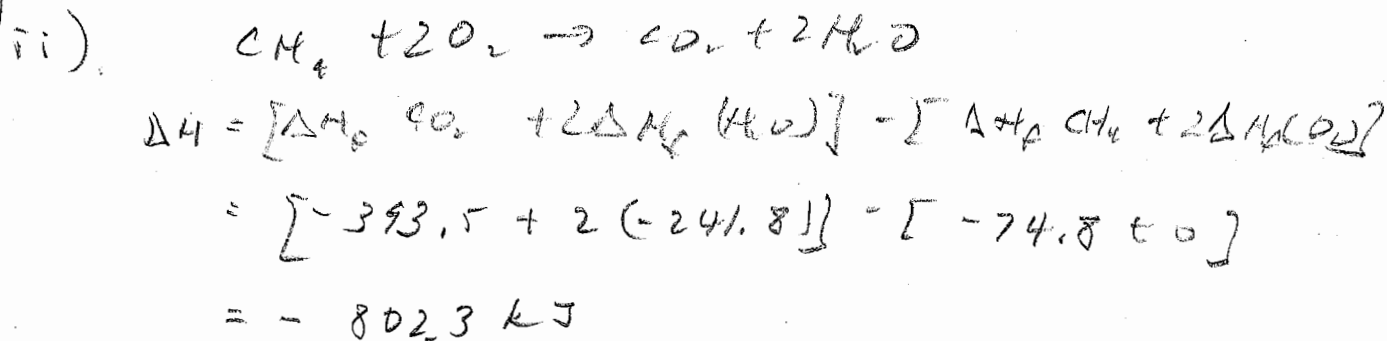 ii). CH₄ + 2O₂ → CO₂ + 2H₂O
ΔH = [ΔH_f CO₂ + 2ΔH_f (H₂O)] - [ΔH_f CH₄ + 2ΔH_f(O₂)]
= [-393.5 + 2(-241.8)] - [-74.8 + 0]
= - 802.3 kJ